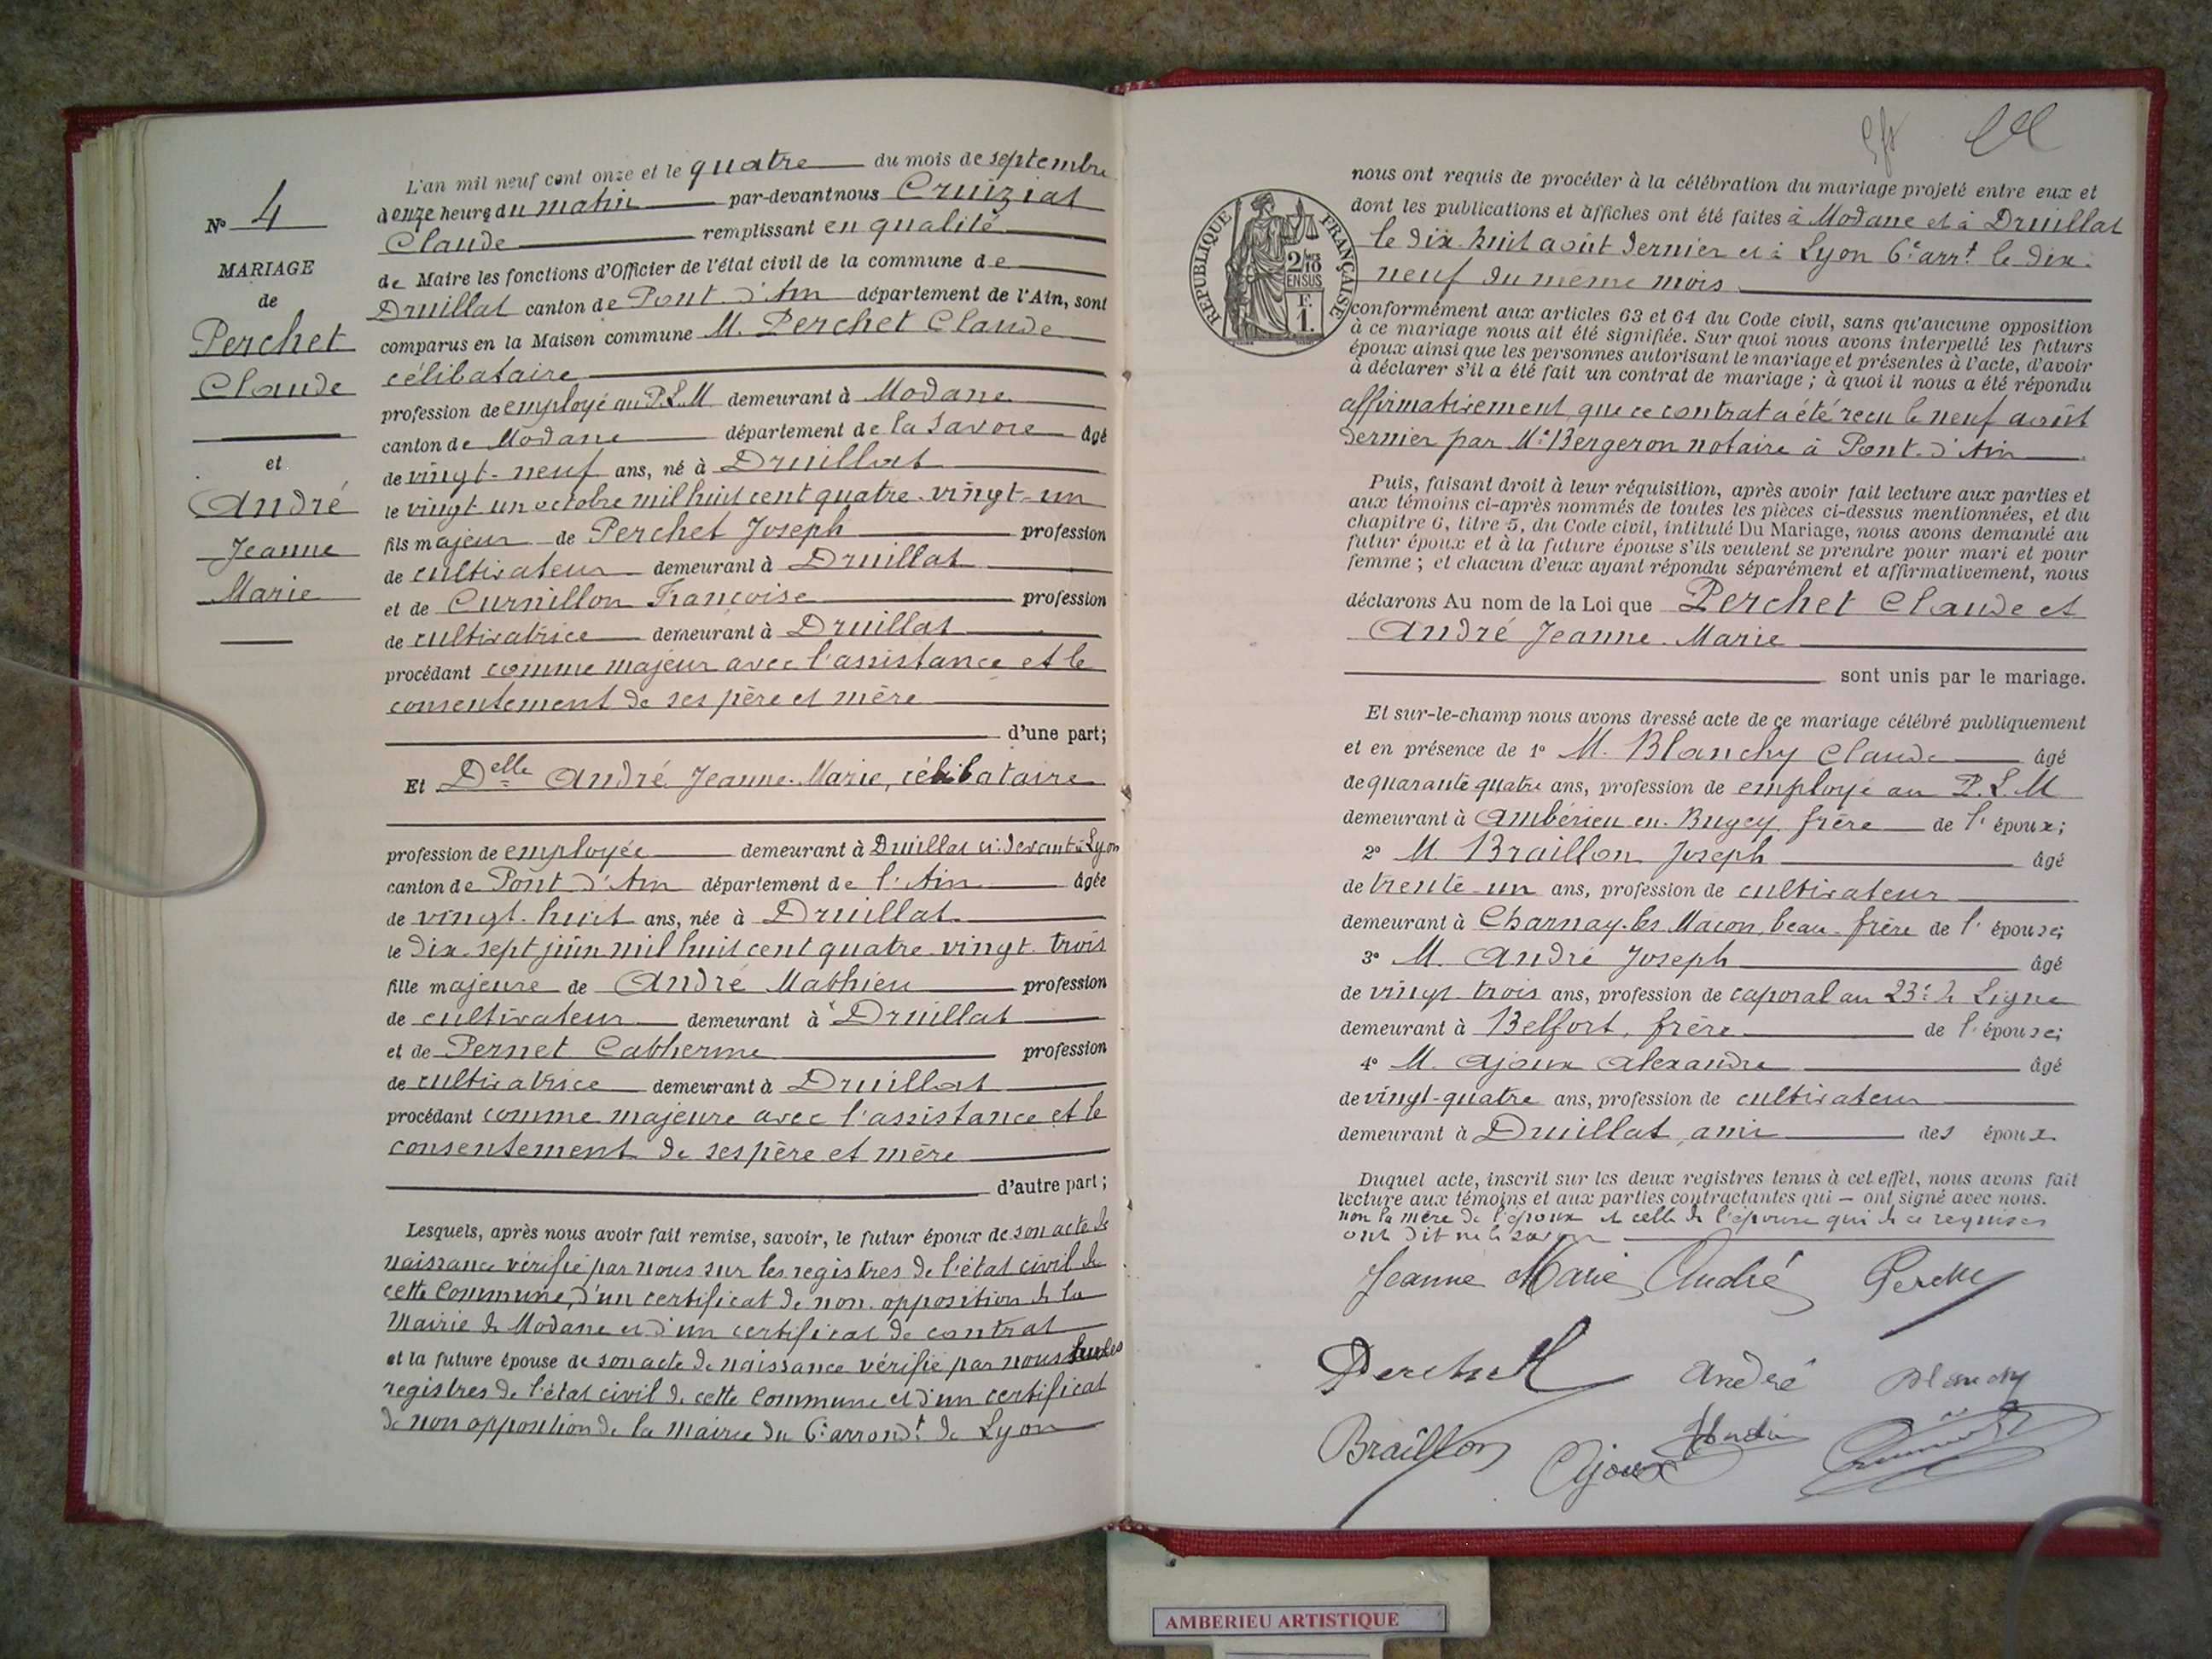 L'an mil neuf cent onze et le quatre du mois de septembre
à onze heures du matin par-devant nous Cruiziat
Claude remplissant en qualité
de Maire les fonctions d'Officier de l'état civil de la commune de
Druillat canton de Pont d'Ain département de l'Ain, sont
comparus en la Maison commune M. Perchet Claude
célibataire
profession de employé au P.L.M demeurant à Modane
canton de Modane département de la Savoie âgé
de vingt-neuf ans, né à Druillat
le vingt un octobre mil huit cent quatre-vingt-un
fils majeur de Perchet Joseph profession
de cultivateur demeurant à Druillat
et de Curnillon Françoise profession
de cultivatrice demeurant à Druillat
procédant comme majeur avec l'assistance et le
consentement de ses père et mère
d'une part;
Et Delle André Jeanne-Marie, célibataire
profession de employée demeurant à Druillat ci-devant à Lyon
canton de Pont d'Ain département de l'Ain âgée
de vingt-huit ans, née à Druillat
le dix-sept juin mil huit cent quatre-vingt-trois
fille majeure de André Mathieu profession
de cultivateur demeurant à Druillat
et de Pernet Catherine profession
de cultivatrice demeurant à Druillat
procédant comme majeure avec l'assistance et le
consentement de ses père et mère
d'autre part;
Lesquels, après nous avoir fait remise, savoir, le futur époux de son acte de
naissance vérifié par nous sur les registres de l'état civil de
cette Commune, d'un certificat de non-opposition de la
Mairie de Modane et d'un certificat de contrat
et la future épouse de son acte de naissance vérifié par nous sur les
registres de l'état civil de cette Commune et d'un certificat
de non opposition de la mairie du 6e arrondt de Lyon
No 4
MARIAGE
de
Perchet
Claude
et
André
Jeanne
Marie
nous ont requis de procéder à la célébration du mariage projeté entre eux et
dont les publications et affiches ont été faites à Modane et à Druillat
le dix-huit août dernier et à Lyon 6e arrt le dix-
neuf du même mois
conformément aux articles 63 et 64 du Code civil, sans qu'aucune opposition
à ce mariage nous ait été signifiée. Sur quoi nous avons interpellé les futurs
époux ainsi que les personnes autorisant le mariage et présentes à l'acte, d'avoir
à déclarer s'il a été fait un contrat de mariage; à quoi il nous a été répondu
affirmativement, que ce contrat a été reçu le neuf août
dernier par Me Bergeron notaire à Pont-d'Ain
Puis, faisant droit à leur réquisition, après avoir fait lecture aux parties et
aux témoins ci-après nommés de toutes les pièces ci-dessus mentionnées, et du
chapitre 6, titre 5, du Code civil, intitulé Du Mariage, nous avons demandé au
futur époux et à la future épouse s'ils veulent se prendre pour mari et pour
femme; et chacun d'eux ayant répondu séparément et affirmativement, nous
déclarons Au nom de la Loi que Perchet Claude et
André Jeanne-Marie
sont unis par le mariage.
Et sur-le-champ nous avons dressé acte de ce mariage célébré publiquement
et en présence de 1° M. Blanchy Claude âgé
de quarante quatre ans, profession de employé au P.L.M
demeurant à Ambérieu-en-Bugey, frère de l'époux;
2° M. Braillon Joseph âgé
de trente-un ans, profession de cultivateur
demeurant à Charnay-les-Macon, beau-frère de l'épouse;
3° M. André Joseph âgé
de vingt-trois ans, profession de caporal au 23e de Ligne
demeurant à Belfort, frère de l'épouse;
4° M. Ajoux Alexandre âgé
de vingt-quatre ans, profession de cultivateur
demeurant à Druillat, ami des époux
Duquel acte, inscrit sur les deux registres tenus à cet effet, nous avons fait
lecture aux témoins et aux parties contractantes qui — ont signé avec nous.
non la mère de l'époux et celle de l'épouse qui de ce requises
ont dit ne le savoir
Jeanne Marie André Perchet
Perchet André Blanchy
Braillon Ajoux
RÉPUBLIQUE FRANÇAISE
2/10
EN SUS
F.
1.
AMBERIEU ARTISTIQUE